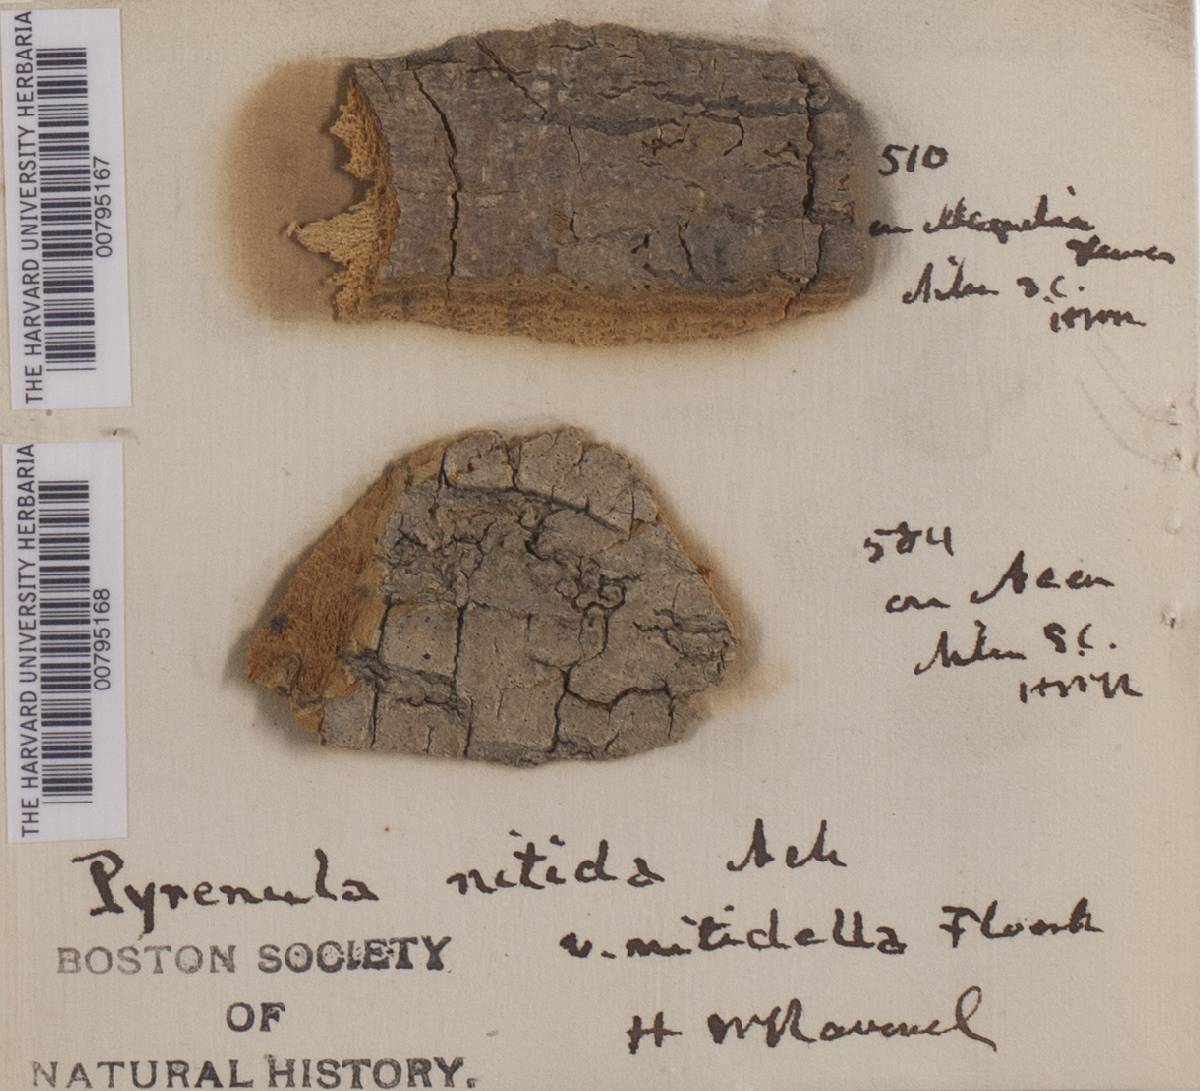 THE HARVARD UNIVERSITY HERBARIA
00795167
510
on
Aiken S.C.
HWR
THE HARVARD UNIVERSITY HERBARIA
00795168
584
on Acer
Aiken S.C.
HWR
Pyrenula nitida Ach
v. nitidella Floerk
BOSTON SOCIETY
OF
NATURAL HISTORY.
H W Ravenel